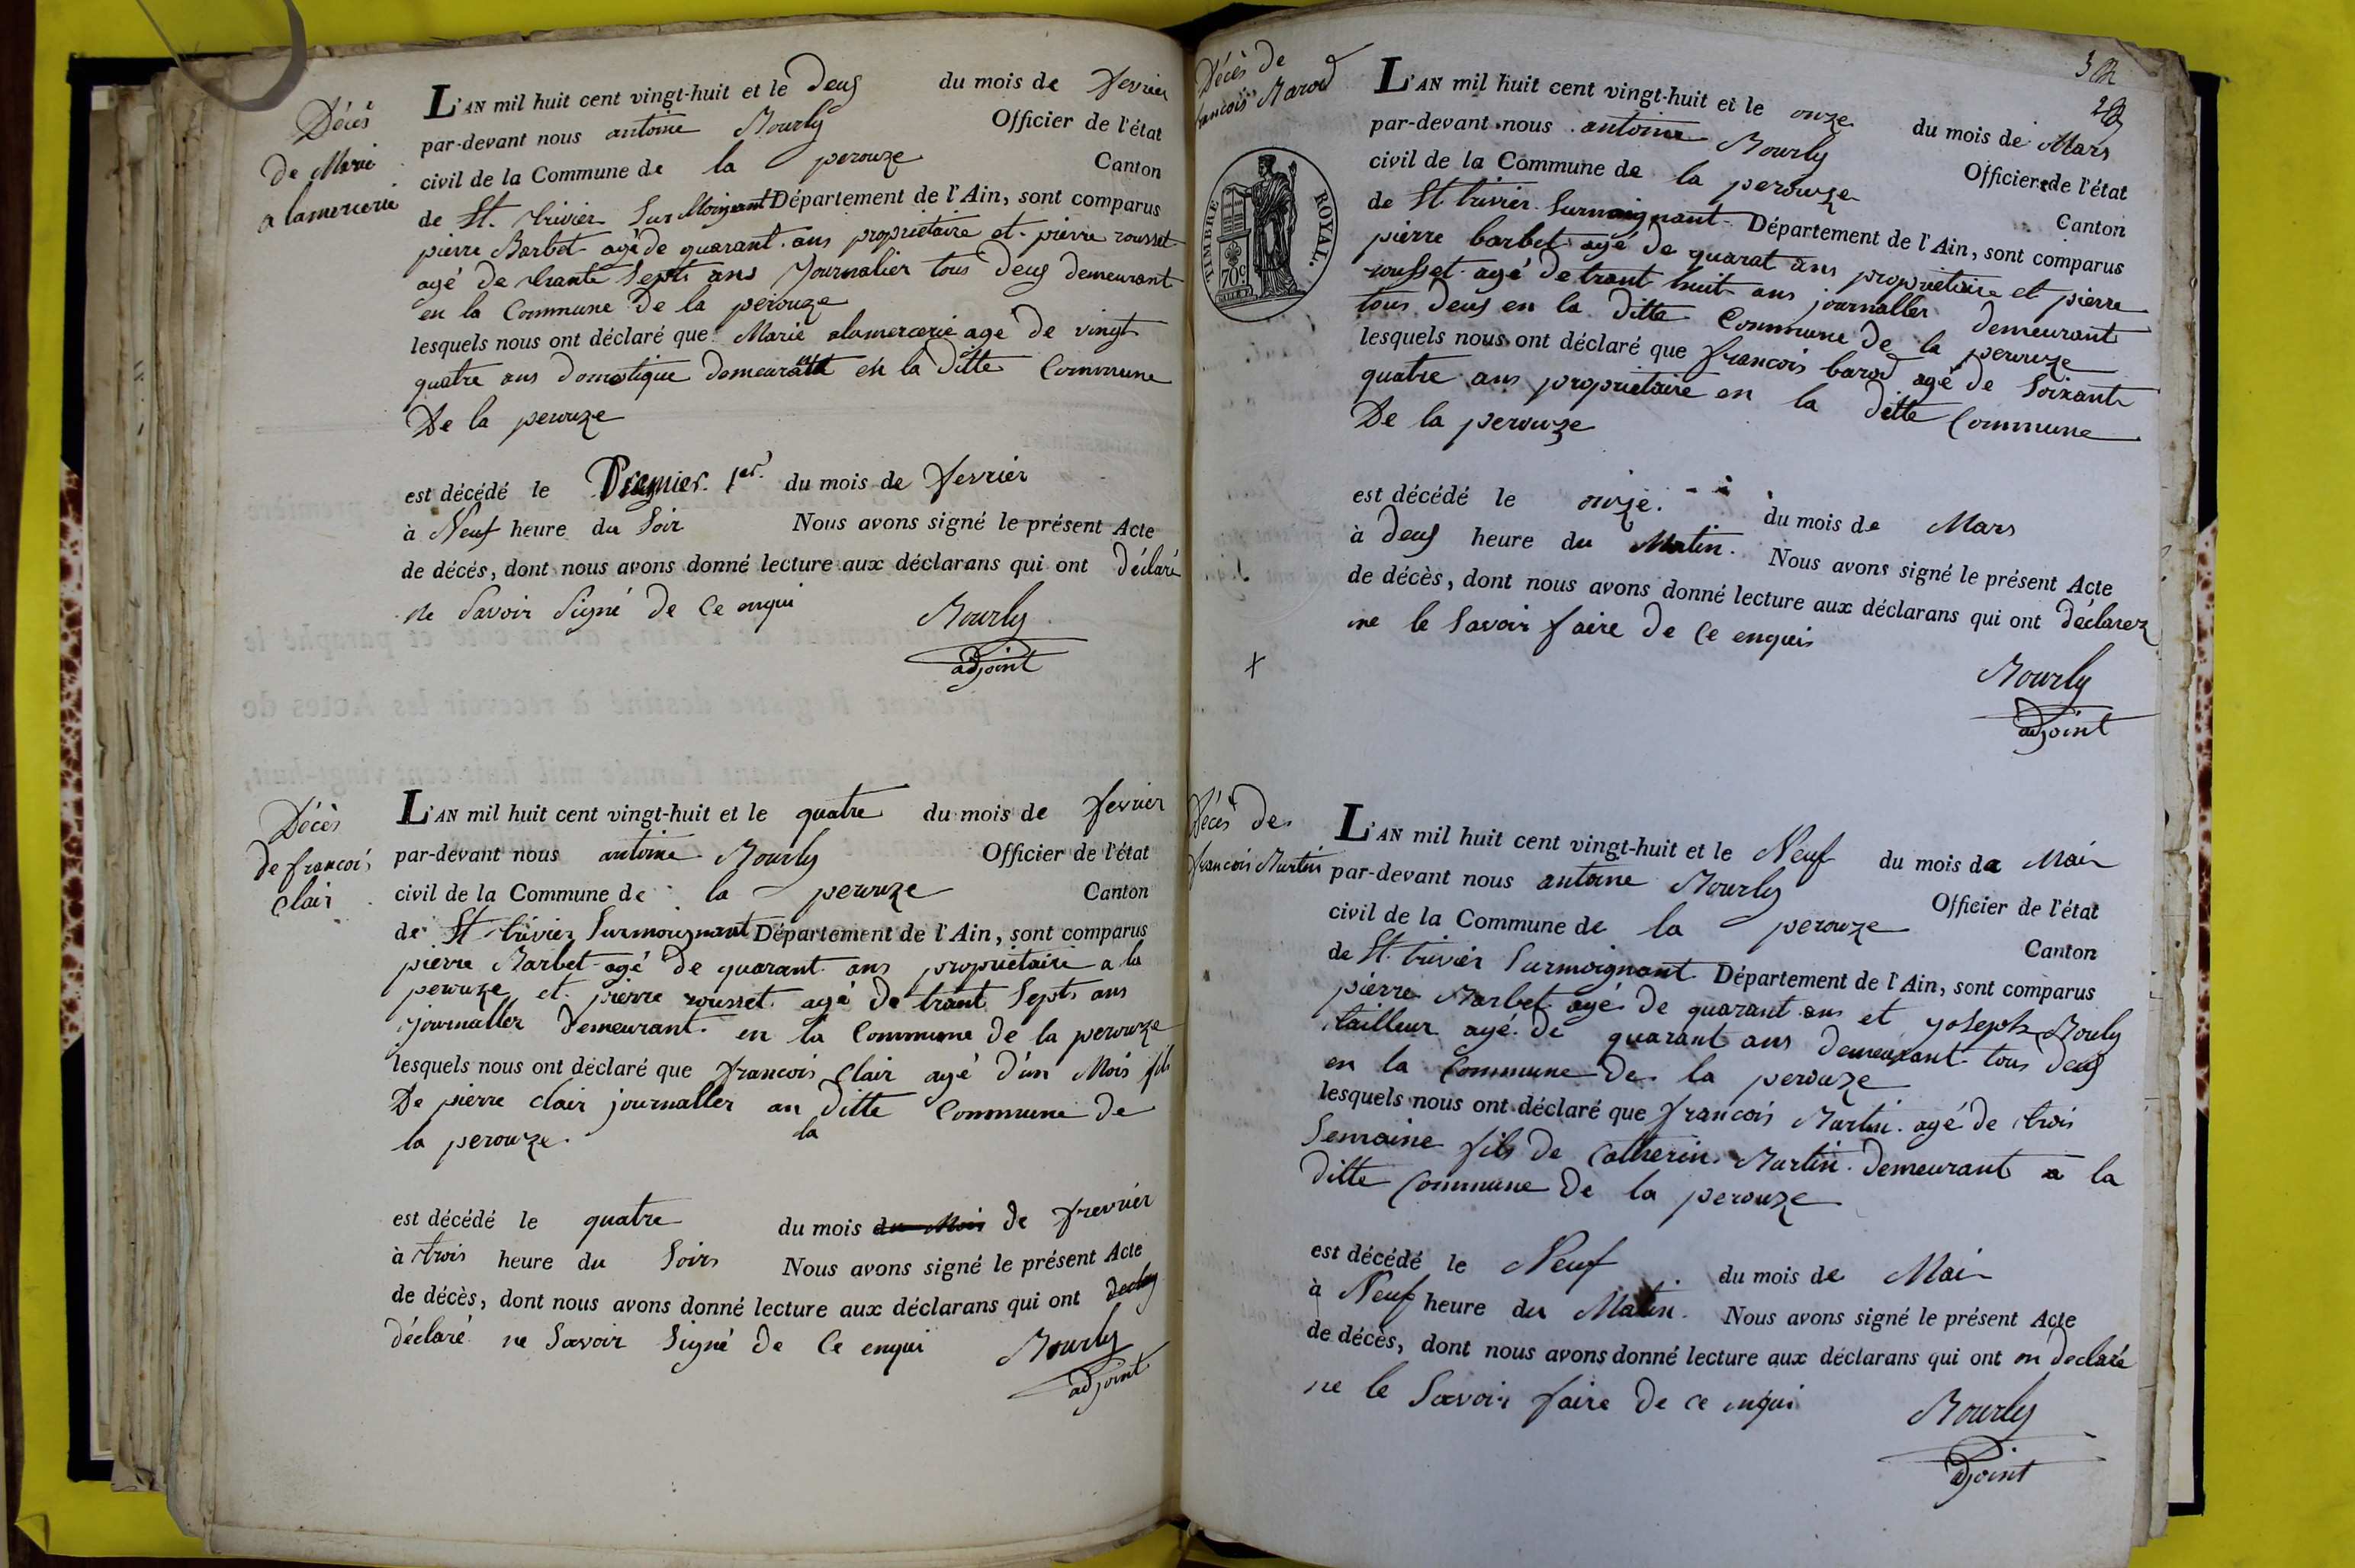 Décès
de Marie
alamercerie
L'AN mil huit cent vingt-huit et le deus du mois de fevrier
par-devant nous antoine Bourly Officier de l'état
civil de la Commune de la perouze Canton
de St. trivier Sur Moignant Département de l'Ain, sont comparus
pierre Barbet agé de quarant ans proprietaire et pierre rousset
agé de trante Septs ans Journalier tous deus demeurant
en la Commune de la perouze
lesquels nous ont déclaré que Marie alamercerie agé de vingt
quatre ans domestique demeurant en la ditte Commune
De la perouze
est décédé le Premier. 1er. du mois de fevrier
à Neuf heure du Soir Nous avons signé le présent Acte
de décés, dont nous avons donné lecture aux déclarans qui ont déclaré
ne Savoir Signé de Ce enqui
Bourly
adjoint
Décès
de francois
Clair
L'AN mil huit cent vingt-huit et le quatre du mois de fevrier
par-devant nous antoine Bourly Officier de l'état
civil de la Commune de la perouze Canton
de St trivier Surmoignant Département de l'Ain, sont comparus
pierre Barbet agé de quarant ans proprietaire a la
perouze et pierre rousset agé de trant Septs ans
journaller demeurant en la Commune de la perouze
lesquels nous ont déclaré que francois Clair agé d'un Mois fils
De pierre Clair journaller an ditte Commune de
la
la perouze.
est décédé le quatre du mois du Mois de frevrier
à trois heure du Soirs Nous avons signé le présent Acte
de décès, dont nous avons donné lecture aux déclarans qui ont
déclaré ne Savoir Signé de Ce enqui
Bourly
adjoint
Décès de
francois Barod
TIMBRE ROYAL.
70c
L'AN mil huit cent vingt-huit et le onze du mois de Mars
par-devant nous antoine Bourly Officier de l'état
civil de la Commune de la perouze Canton
de St trivier Surmoignant Département de l'Ain, sont comparus
pierre barbet agé de quarat ans proprietaire et pierre
rousset agé de trant huit ans journaller demeurant
tous deus en la ditte Commune De la perouze
lesquels nous ont déclaré que francois barod agé de Soixante
quatre ans proprietaire en la ditte Commune
De la perouze
est décédé le onze. du mois de Mars
à deus heure du Matin. Nous avons signé le présent Acte
de décès, dont nous avons donné lecture aux déclarans qui ont déclarez
ne le Savoir faire de Ce enquis
Bourly
adjoint
Décès de
francois Martin
L'AN mil huit cent vingt-huit et le Neuf du mois de Mai
par-devant nous antoine Bourly Officier de l'état
civil de la Commune de la perouze Canton
de St. trivier Surmoignant Département de l'Ain, sont comparus
pierre Barbet agé de quarant ans et joseph Bouly
tailleur agé de quarant ans demeurant tous deus
en la Commune De la perouze
lesquels nous ont déclaré que francois Martin agé de trois
Semaine fils de Catherin Martin demeurant a la
ditte Commune De la perouze
est décédé le Neuf du mois de Mai
à Neuf heure du Matin. Nous avons signé le présent Acte
de décès, dont nous avons donné lecture aux déclarans qui ont on declaré
ne le Savoir faire de ce enqui
Bourly
adjoint